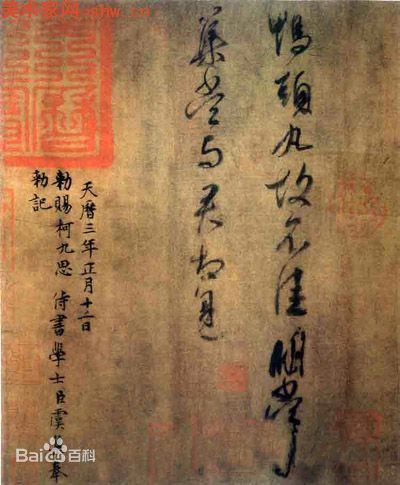 鴨頭丸故不佳明當必
集當與君相見
天曆三年正月十二日
勑賜柯九思侍書學士臣虞奉
勑記
美术家网
Bai百科